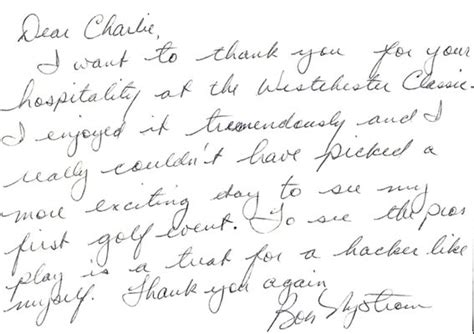 Dear Charlie,
I want to thank you for your
hospitality at the Westchester Classic.
I enjoyed it tremendously and I
really couldn't have picked a
more exciting day to see my
first golf event. To see the pros
play is a treat for a hacker like
myself. Thank you again
Bob Nystrom